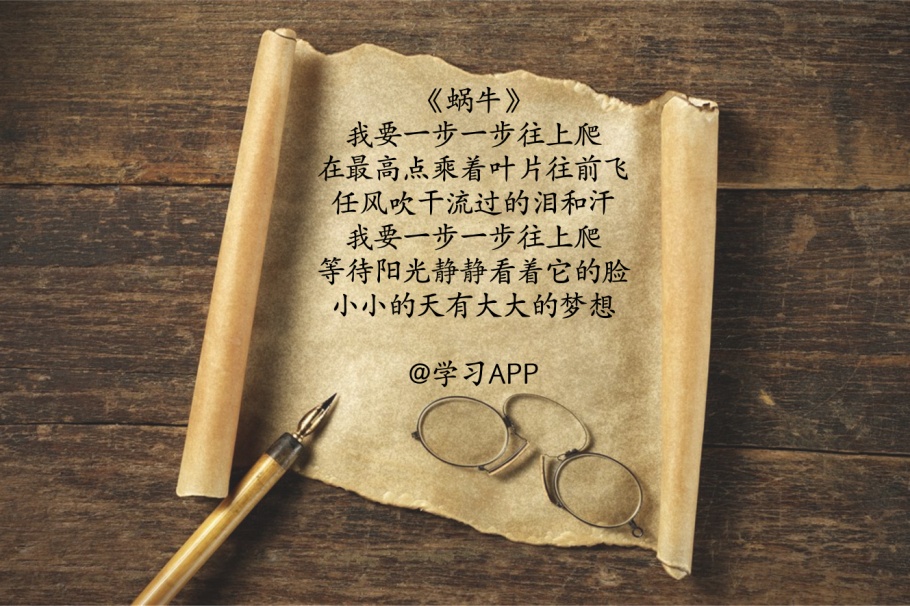 《蜗牛》
我要一步一步往上爬
在最高点乘着叶片往前飞
任风吹干流过的泪和汗
我要一步一步往上爬
等待阳光静静看着它的脸
小小的天有大大的梦想
@学习APP